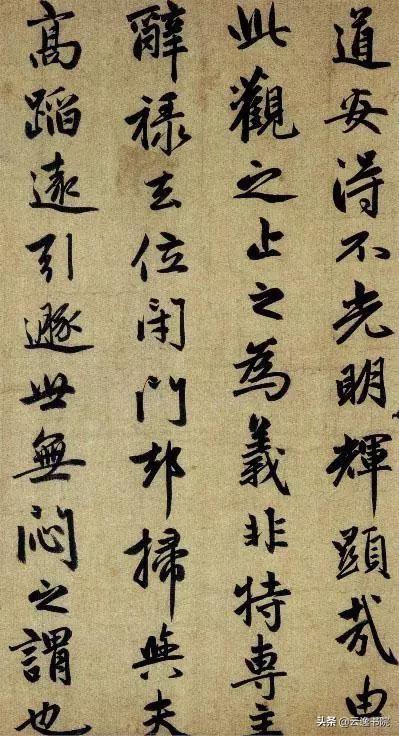 道安得不光明輝顯哉由
此觀之止之為義非特専主
辭祿去位閉門却掃與夫
髙蹈遠引遯世無悶之謂也
头条 @云逸书院